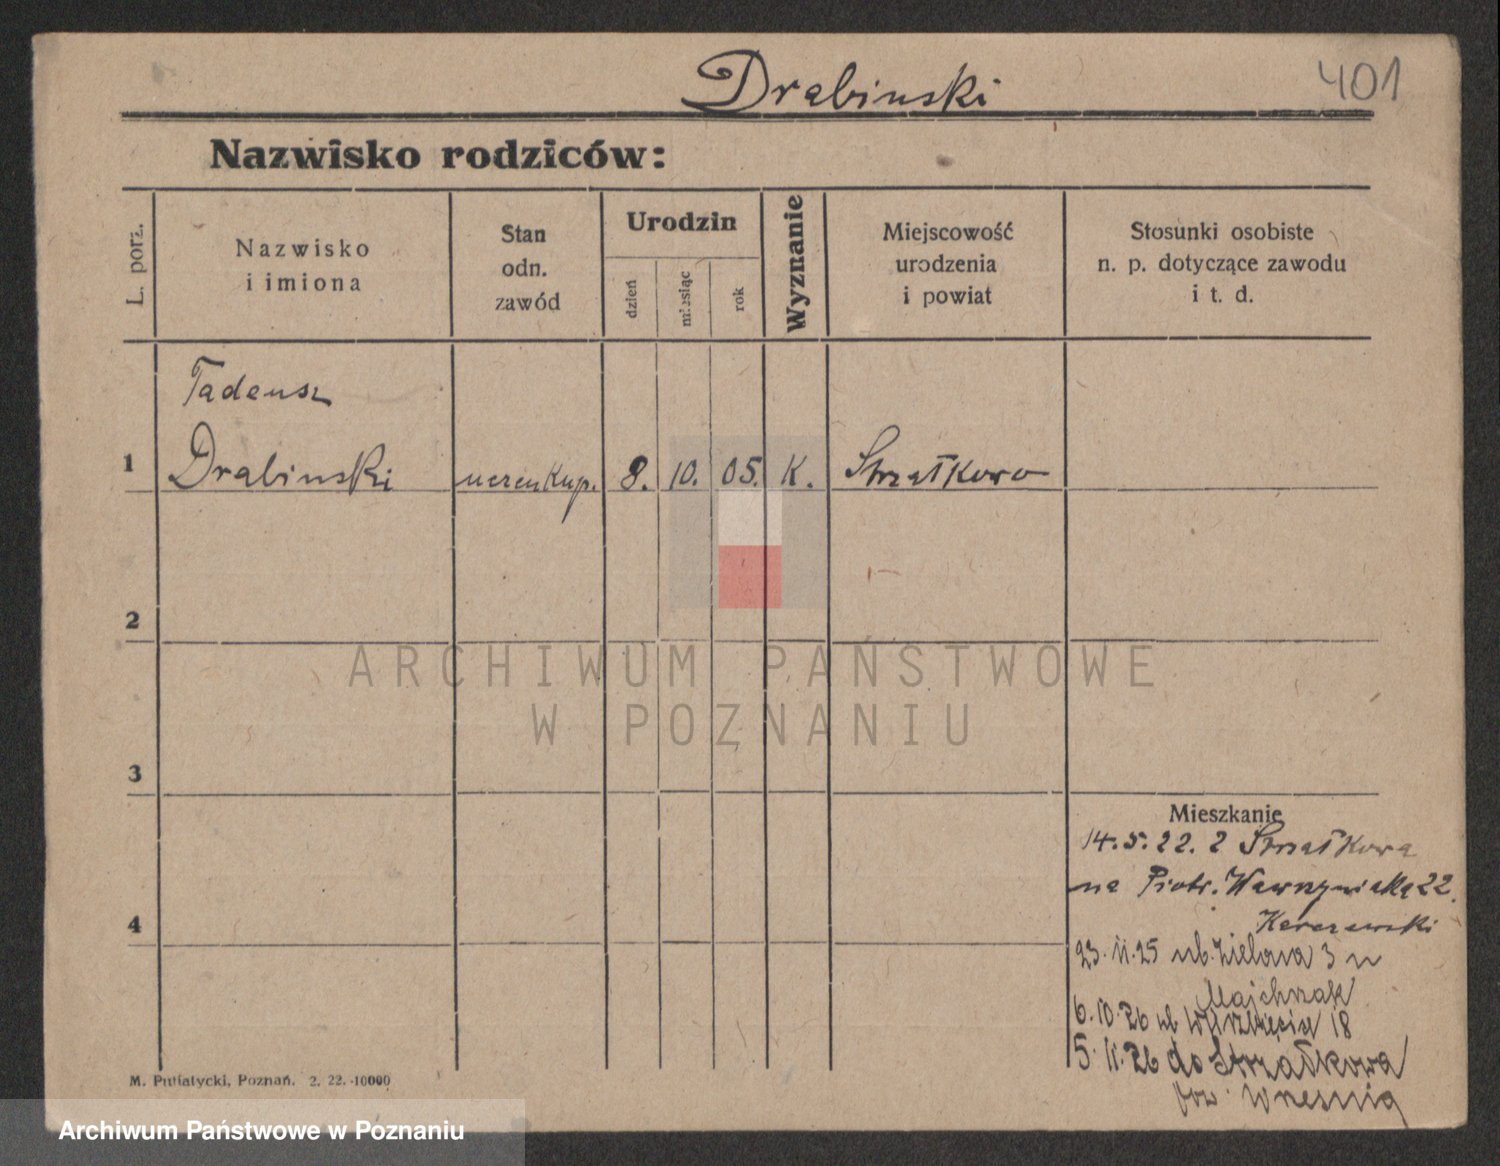 Drabinski
401
Nazwisko rodziców:
L. porz.
Nazwisko
i imiona
Stan
odn.
zawód
Urodzin
dzień
miesiąc
rok
Wyznanie
Miejscowość
urodzenia
i powiat
Stosunki osobiste
n. p. dotyczące zawodu
i t. d.
1
Tadeusz
Drabinski
uczeń kup.
8.
10.
05.
K.
Strzałkowo
2
3
4
ARCHIWUM PAŃSTWOWE
W POZNANIU
Mieszkanie
14.5.22. z Strzałkowa
na Piotr. Wawrzyniaka 22.
23.11.25 ul. Zielona 3 u
Majchrzak
6.10.26 ul 18
5.11.26 do Strzałkowa
pow. Września
M. Putiatycki, Poznań. 2. 22. -10000
Archiwum Państwowe w Poznaniu